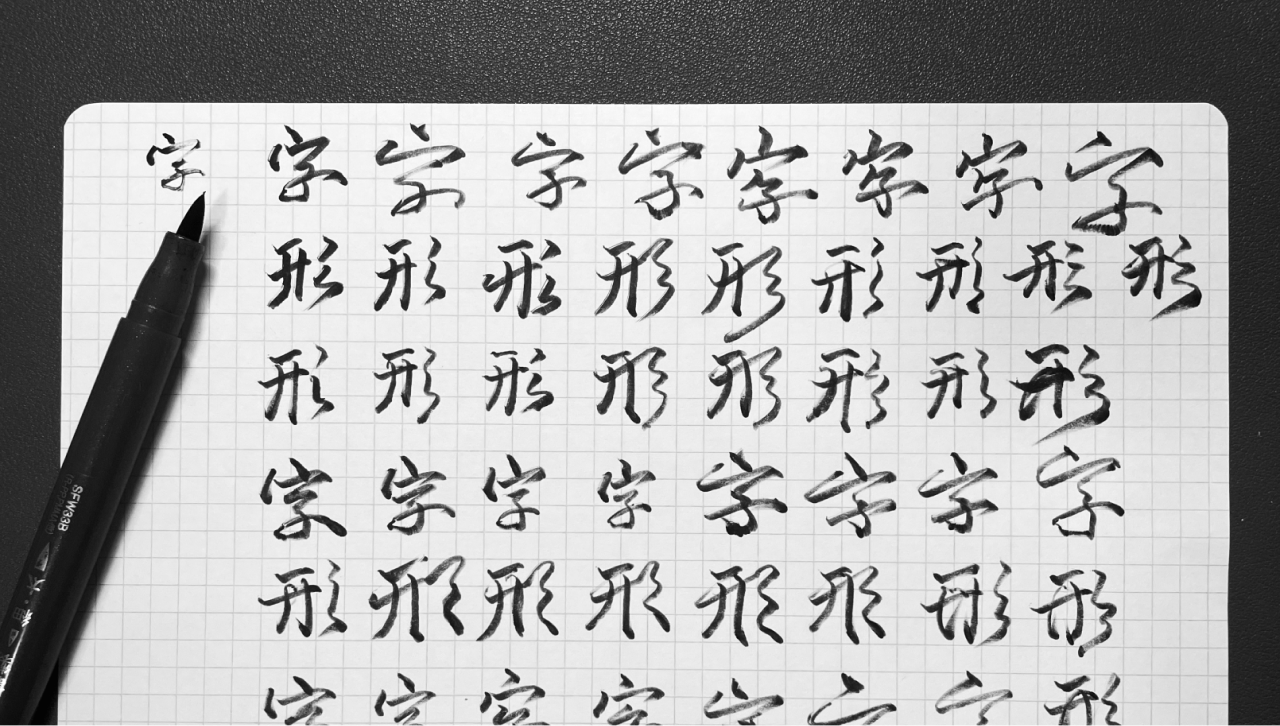 字字字字字字字字字
形形形形形形形形形
形形形形形形形形
字字字字字字字字
形形形形形形形形
字字字字字字字形
SFW33B